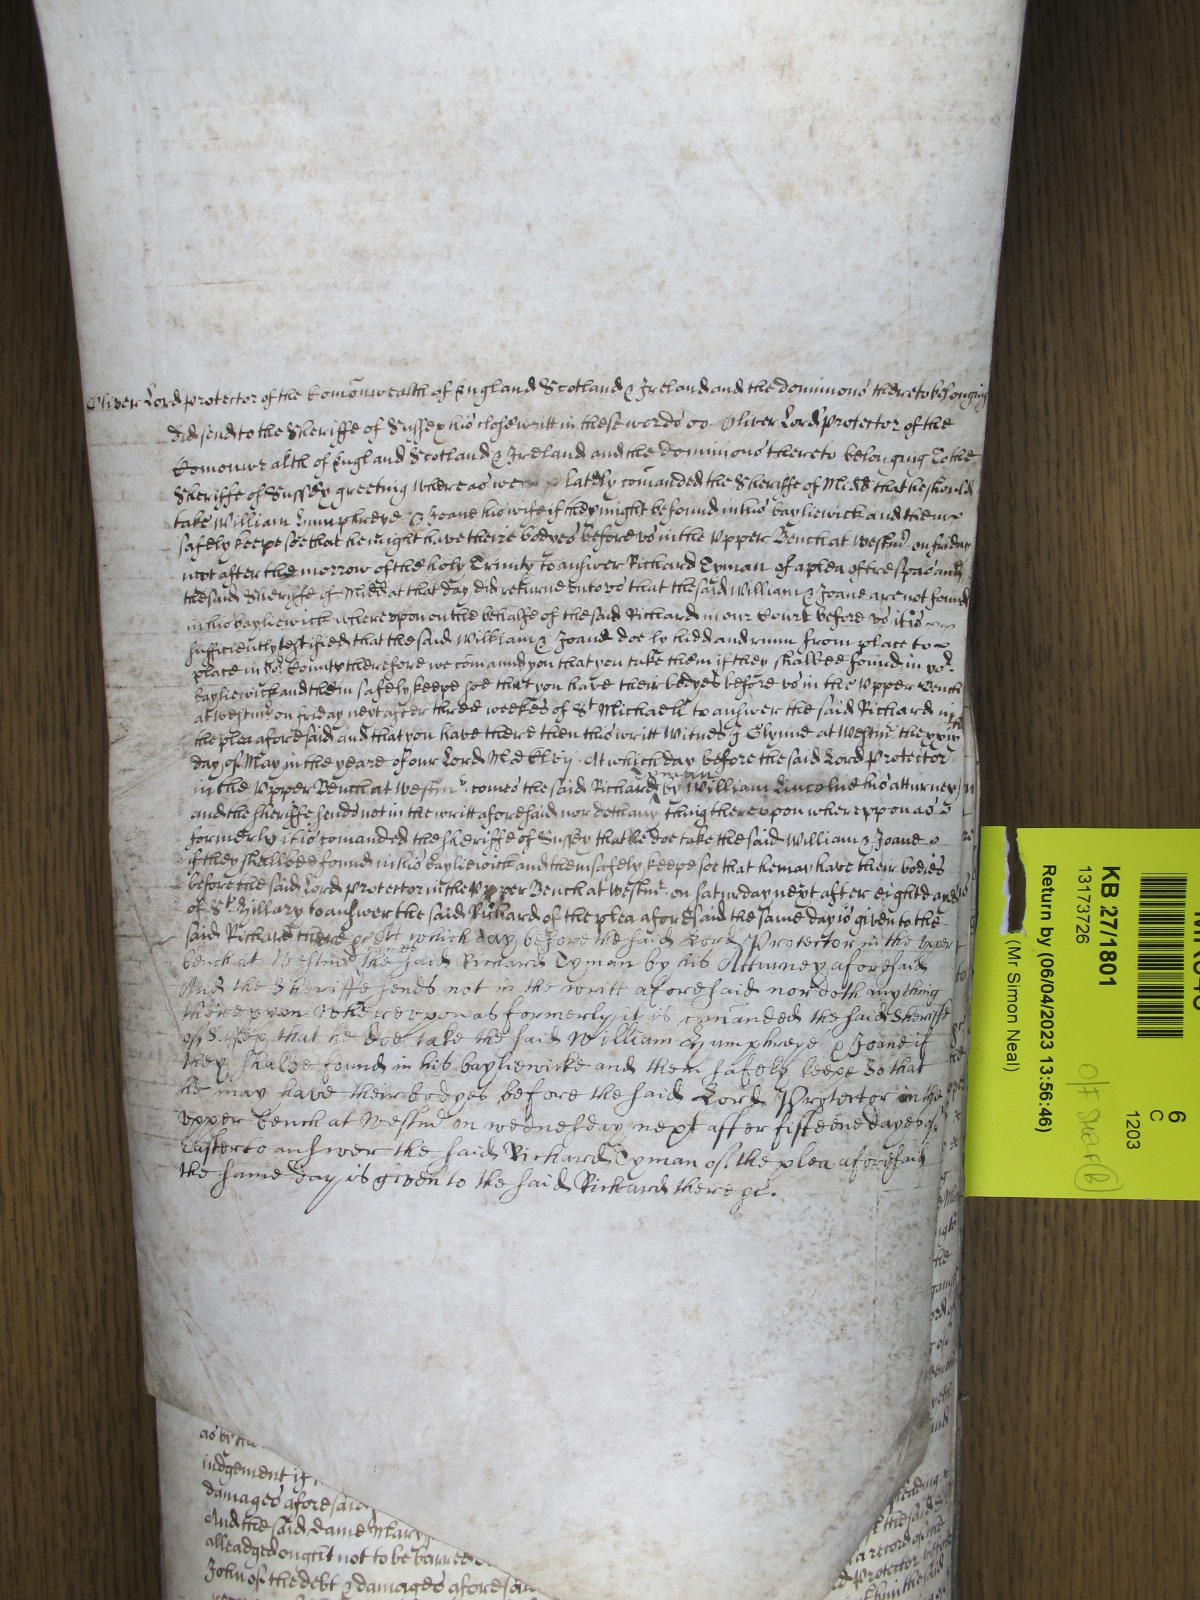 Oliver Lord protector of the Comonwealth of England Scotland & Ireland and the dominions thereto belonging
did send to the Sheriffe of Sussex his close writt in these words ss Oliver Lord protector of the
Comonwealth of England Scotland & Ireland and the dominions thereto belonging To the
Sheriffe of Sussex greeting Whereas wee lately comanded the Sheriffe of Midd that he should
take William Humphreye & Joane his wife if they might be found in his bayliewick and them
safely keepe soe that he might have theire bodyes before us in the Upper Bench at Westmr on friday
next after the morrow of the holy Trinity to answer Richard Tyman of a plea of trespas and
the said Sheriffe of Midd at that day did returne unto us that the said William & Joane are not found
in his bayliewick whereupon on the behalfe of the said Richard in our Court before us it is
sufficiently testified that the said William & Joane doe ly hidd and runn from place to
place in yor County therefore we comannd you that you take them if they shalbee found in yor
bayliewick and them safely keepe soe that you have their bodyes before us in the Upper Bench
at Westmr on friday next after three weekes of St Michaell to answer the said Richard in
the plea aforesaid and that you have there then this writt Witnes J Glynne at Westmr the xxixth
day of May in the yeare of our Lord Mdclvij At which day before the said Lord Protector
in the Upper Bench at Westmr comes the said Richard Tyman by William Lincolne his atturney
and the sheriffe sends not in the writt aforesaid nor doth any thing thereupon whereupon as
formerly it is comanded the sheriffe of Sussex that he doe take the said William & Joane
if they shalbee found in his bayliewick and them safely keepe soe that he may have their bodies
before the said Lord Protector in the Upper Bench at Westmr on saturday next after eight dayes
of St Hillary to answer the said Richard of the plea aforesaid the same day is given to the
said Richard there &c At which day before the said Lord Protector in the upper
bench at Westmr comes the said Richard Tyman by his Atturney aforesaid
And the Sheriffe sends not in the writt aforesaid nor doth any thing
thereupon Whereupon as formerly it is comanded the said Sheriffe
of Sussex that he doe take the said William Humphreye & Joane if
they shalbe found in his bayliewicke and them safely keepe so that
he may have their bodyes before the said Lord Protector in the
upper bench at Westmr on wednesday next after fifteene dayes of
Easter to answer the said Richard Tyman of the plea aforesaid
the same day is given to the said Richard there &c.
judgement if
damages aforesaid
And the said dame Mary
alleadged ought not to be barred
John of the debt & damages aforesaid
KB 27/1801
13173726
Return by (06/04/2023 13:56:46)
(Mr Simon Neal)
6
C
1203